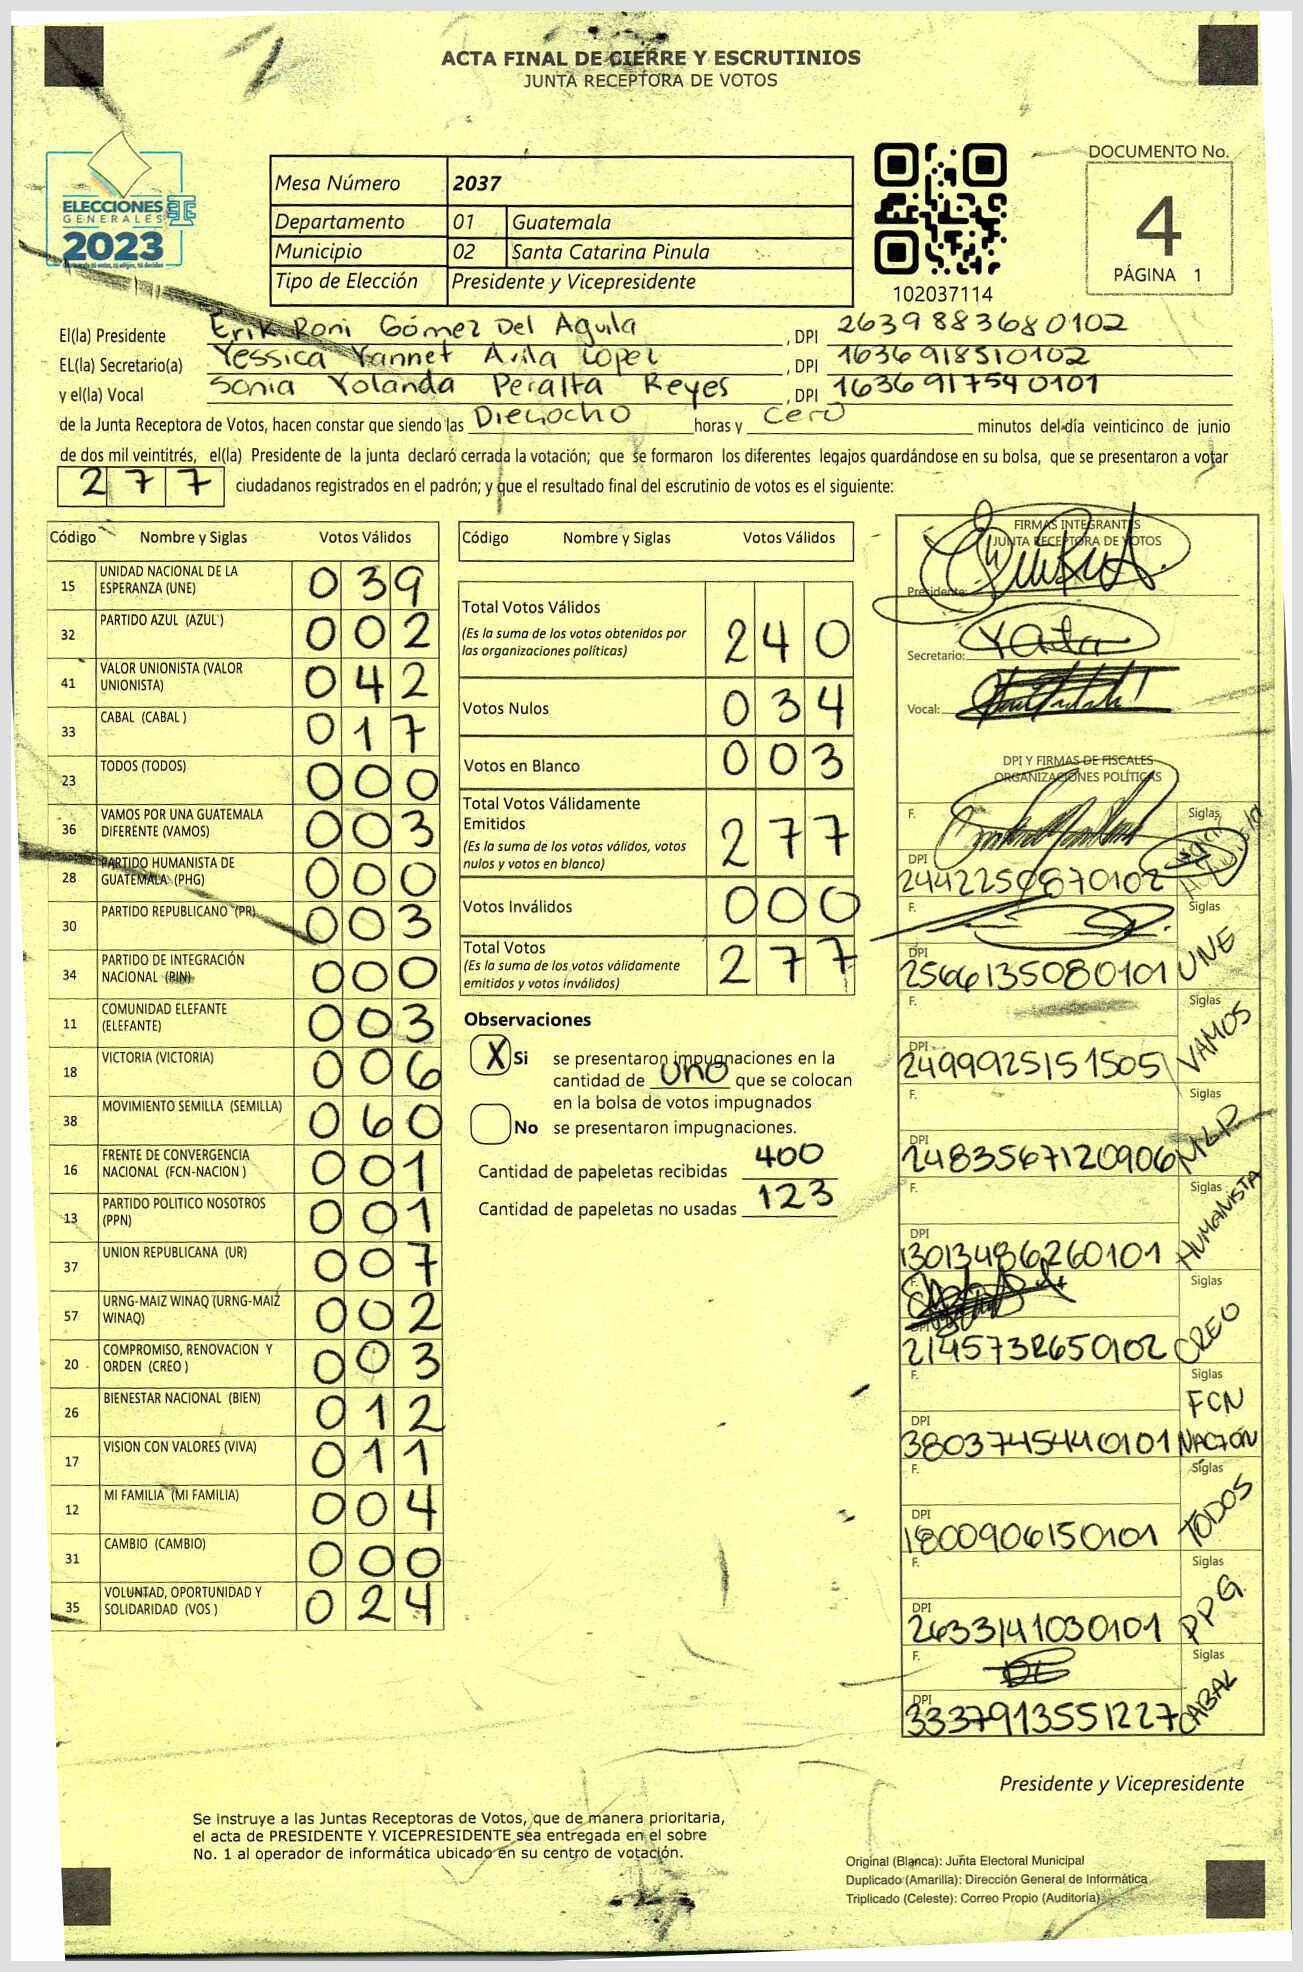 ACTA FINAL DE CIERRE Y ESCRUTINIOS
JUNTA RECEPTORA DE VOTOS
ELECCIONES
GENERALES
2023
Mesa Número 2037
Departamento 01 Guatemala
Municipio 02 Santa Catarina Pinula
Tipo de Elección Presidente y Vicepresidente
102037114
DOCUMENTO No.
4
PÁGINA 1
El(la) Presidente Erik Roni Gómez Del Aguila , DPI 2639883680102
EL(la) Secretario(a) Yessica Yannet Avila Lopez , DPI 1636918510102
y el(la) Vocal Sonia Yolanda Peralta Reyes , DPI 1636917540101
de la Junta Receptora de Votos, hacen constar que siendo las Dieciocho horas y Cero minutos del día veinticinco de junio
de dos mil veintitrés, el(la) Presidente de la junta declaró cerrada la votación; que se formaron los diferentes legajos guardándose en su bolsa, que se presentaron a votar
277 ciudadanos registrados en el padrón; y que el resultado final del escrutinio de votos es el siguiente:
Código Nombre y Siglas Votos Válidos
15 UNIDAD NACIONAL DE LA ESPERANZA (UNE) 039
32 PARTIDO AZUL (AZUL) 002
41 VALOR UNIONISTA (VALOR UNIONISTA) 042
33 CABAL (CABAL ) 017
23 TODOS (TODOS) 000
36 VAMOS POR UNA GUATEMALA DIFERENTE (VAMOS) 003
28 PARTIDO HUMANISTA DE GUATEMALA (PHG) 000
30 PARTIDO REPUBLICANO (PR) 003
34 PARTIDO DE INTEGRACIÓN NACIONAL (PIN) 000
11 COMUNIDAD ELEFANTE (ELEFANTE) 003
18 VICTORIA (VICTORIA) 006
38 MOVIMIENTO SEMILLA (SEMILLA) 060
16 FRENTE DE CONVERGENCIA NACIONAL (FCN-NACION ) 001
13 PARTIDO POLITICO NOSOTROS (PPN) 001
37 UNION REPUBLICANA (UR) 007
57 URNG-MAIZ WINAQ (URNG-MAIZ WINAQ) 002
20 COMPROMISO, RENOVACION Y ORDEN (CREO ) 003
26 BIENESTAR NACIONAL (BIEN) 012
17 VISION CON VALORES (VIVA) 011
12 MI FAMILIA (MI FAMILIA) 004
31 CAMBIO (CAMBIO) 000
35 VOLUNTAD, OPORTUNIDAD Y SOLIDARIDAD (VOS ) 024
Código Nombre y Siglas Votos Válidos
Total Votos Válidos
(Es la suma de los votos obtenidos por
las organizaciones políticas) 240
Votos Nulos 034
Votos en Blanco 003
Total Votos Válidamente
Emitidos
(Es la suma de los votos válidos, votos
nulos y votos en blanco) 277
Votos Inválidos 000
Total Votos
(Es la suma de los votos válidamente
emitidos y votos inválidos) 277
Observaciones
X Si se presentaron impugnaciones en la
cantidad de uno que se colocan
en la bolsa de votos impugnados
No se presentaron impugnaciones.
Cantidad de papeletas recibidas 400
Cantidad de papeletas no usadas 123
FIRMAS INTEGRANTES
JUNTA RECEPTORA DE VOTOS
Presidente:
Secretario:
Vocal:
DPI Y FIRMAS DE FISCALES
ORGANIZACIONES POLÍTICAS
F. Siglas
DPI
2442250870102
F. Siglas
DPI
2566135080101 UNE
F. Siglas
DPI
2499925151505 VAMOS
F. Siglas
DPI
2483567120906 MLP
F. Siglas
DPI
13013486260101 HUMANISTA
F. Siglas
CREO
F. Siglas
DPI
3803745440101 FCN NACION
F. Siglas
DPI
1800906150101 TODOS
F. Siglas
DPI
2633141030101 PPG
F. Siglas
DPI
3337913551227 CABAL
Presidente y Vicepresidente
Se instruye a las Juntas Receptoras de Votos, que de manera prioritaria,
el acta de PRESIDENTE Y VICEPRESIDENTE sea entregada en el sobre
No. 1 al operador de informática ubicado en su centro de votación.
Original (Blanca): Junta Electoral Municipal
Duplicado (Amarilla): Dirección General de Informática
Triplicado (Celeste): Correo Propio (Auditoría)